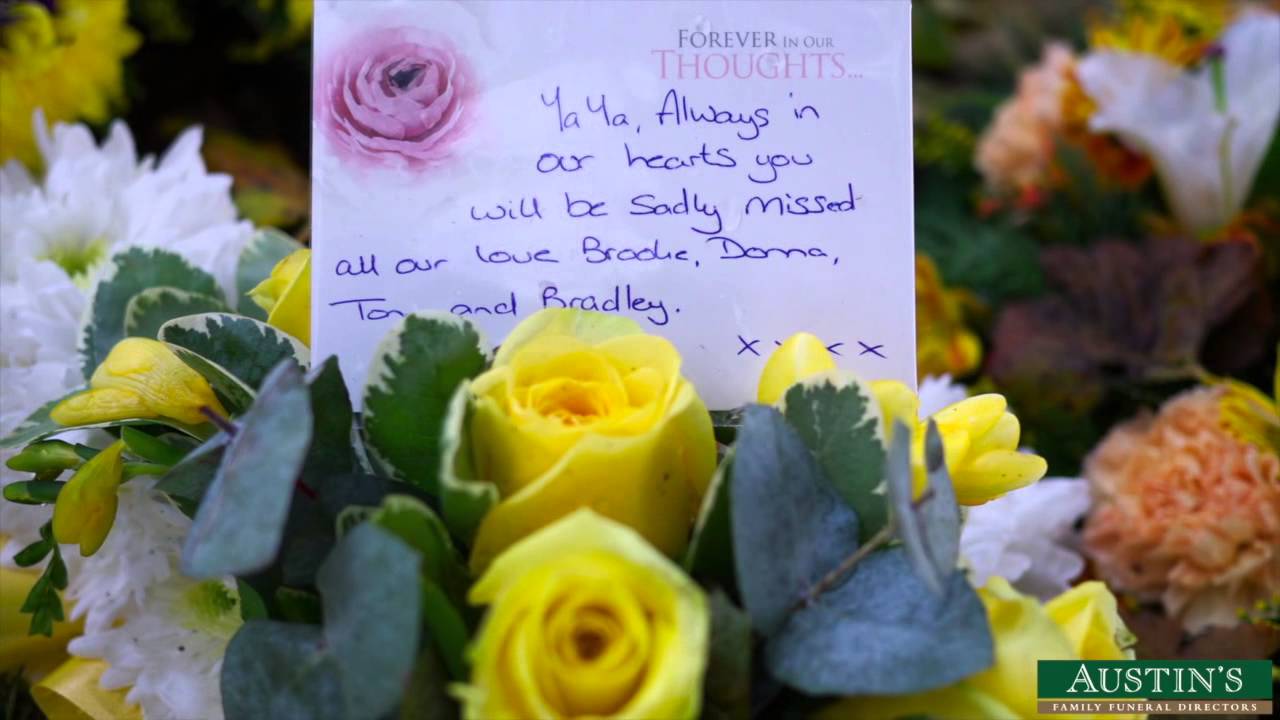 FOREVER IN OUR
THOUGHTS...
YaYa, Always in
our hearts you
will be Sadly missed
all our love Brooke, Donna,
and Bradley.
x x x
AUSTIN'S
FAMILY FUNERAL DIRECTORS